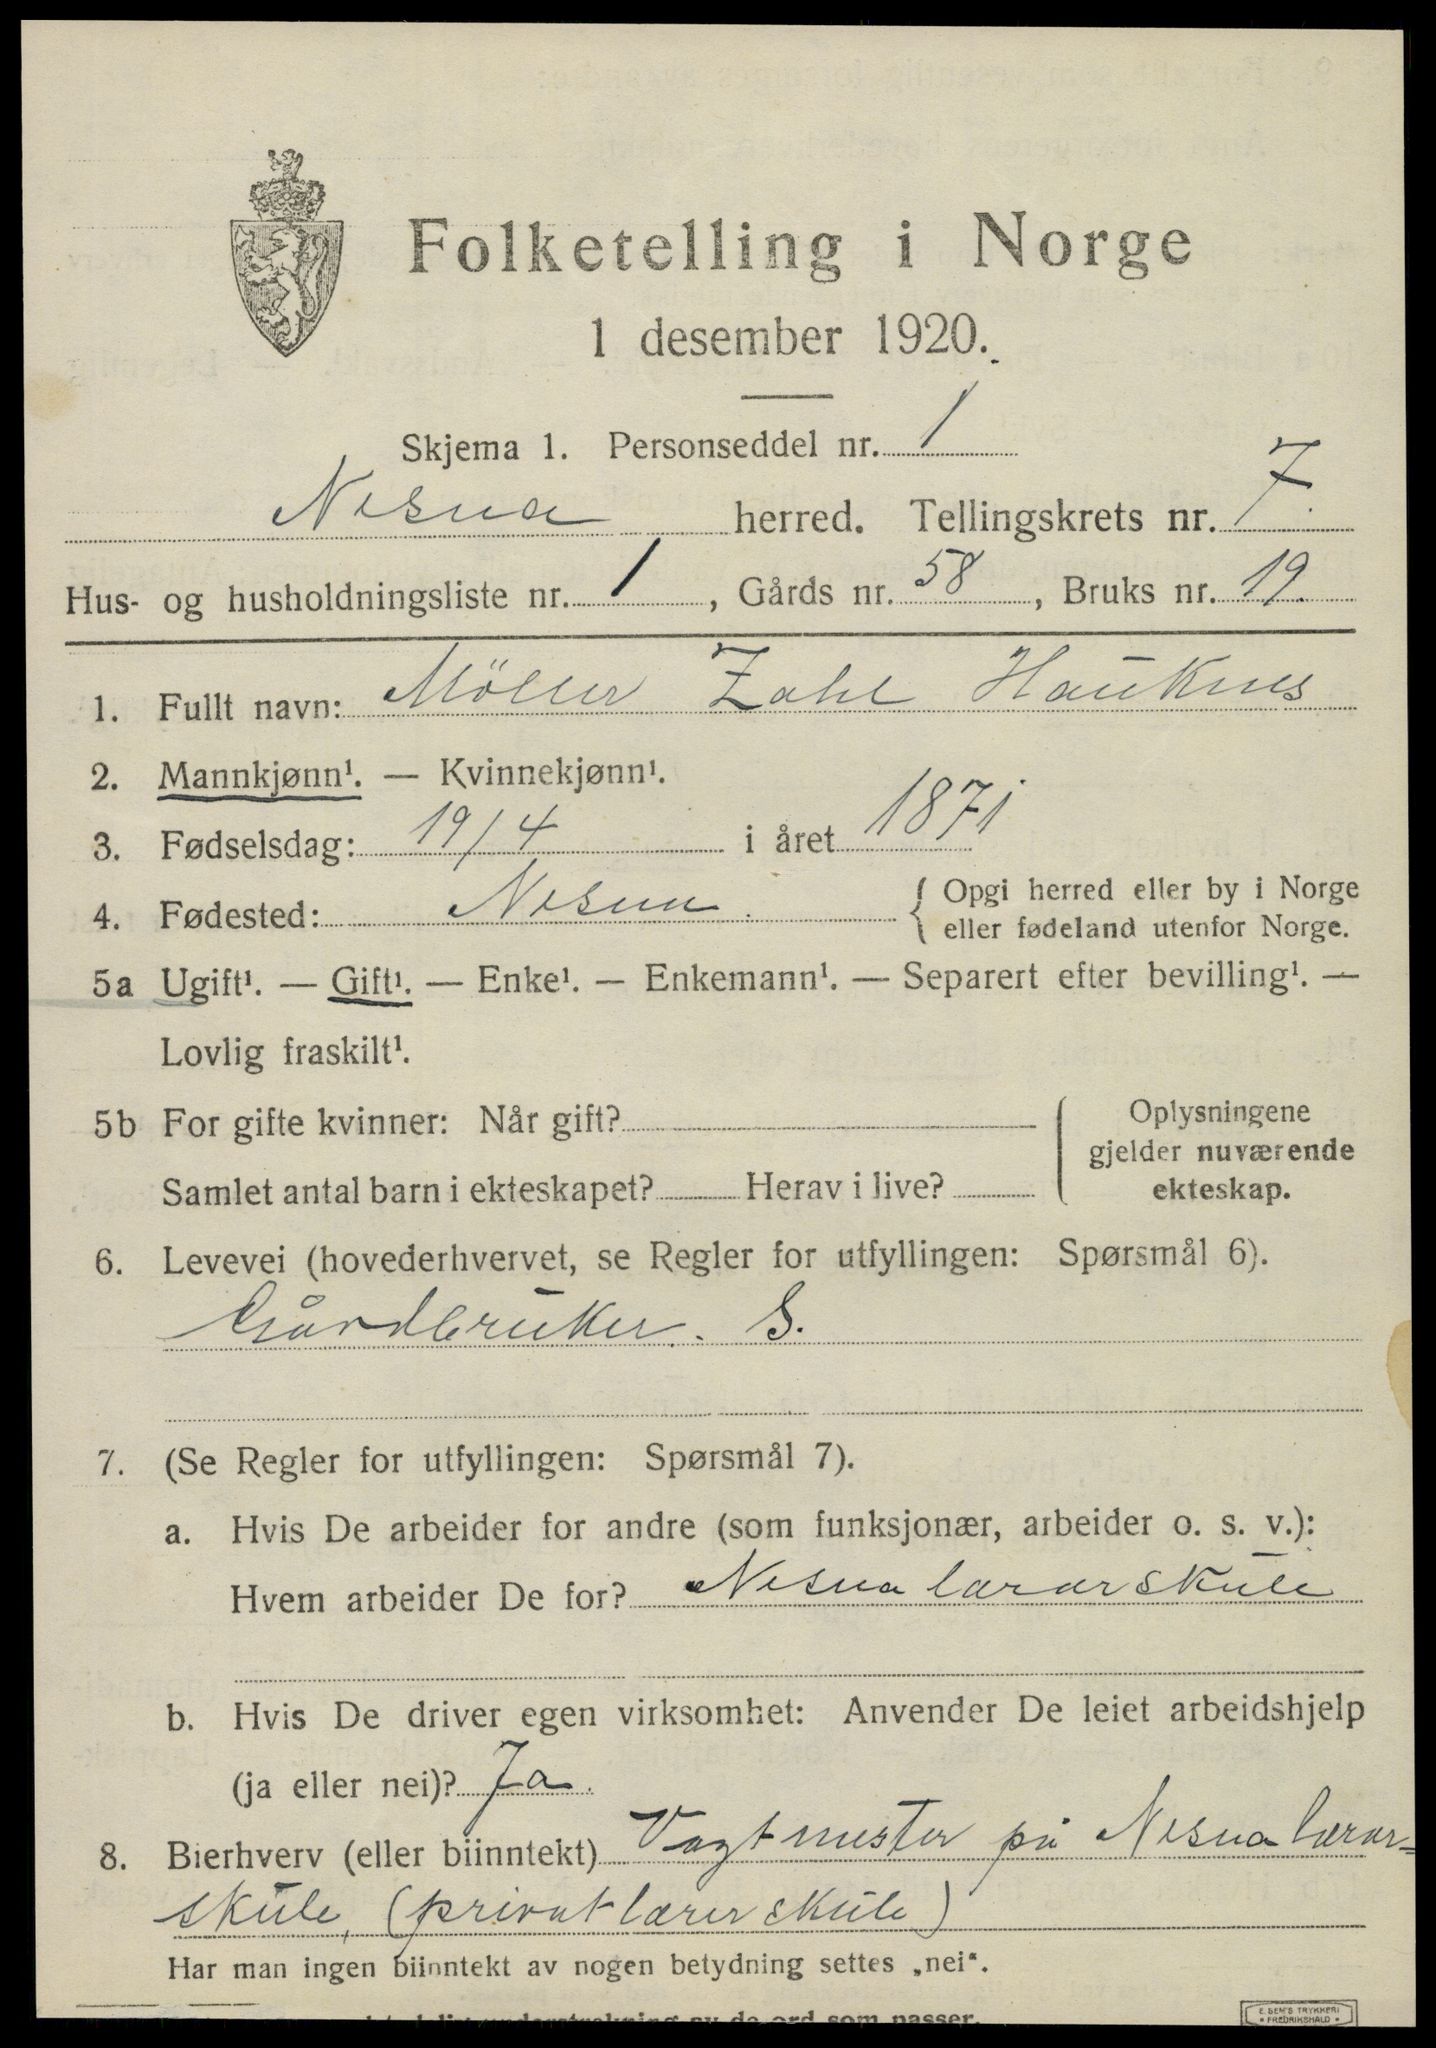 Folketelling i Norge
1 desember 1920.
Skjema 1. Personseddel nr. 1
Nesna herred. Tellingskrets nr. 7.
Hus- og husholdningsliste nr. 1, Gårds nr. 58, Bruks nr. 19.
1. Fullt navn: Möller Zahl Hauknes
2. Mannkjønn¹. — Kvinnekjønn¹.
3. Fødselsdag: 19/4 i året 1871
4. Fødested: Nesna. { Opgi herred eller by i Norge
eller fødeland utenfor Norge.
5a Ugift¹. — Gift¹. — Enke¹. — Enkemann¹. — Separert efter bevilling¹. —
Lovlig fraskilt¹.
5b For gifte kvinner: Når gift?
Samlet antal barn i ekteskapet? Herav i live?
Oplysningene
gjelder nuværende
ekteskap.
6. Levevei (hovederhvervet, se Regler for utfyllingen: Spørsmål 6).
Gårdbruker. S.
7. (Se Regler for utfyllingen: Spørsmål 7).
a. Hvis De arbeider for andre (som funksjonær, arbeider o. s. v.):
Hvem arbeider De for? Nesna lærarskule
b. Hvis De driver egen virksomhet: Anvender De leiet arbeidshjelp
(ja eller nei)? Ja.
8. Bierhverv (eller biinntekt) Vagtmester på Nesna lærar-
skule, (privat lærerskule)
Har man ingen biinntekt av nogen betydning settes „nei“.
understrekning av de ord som passer.
E. SEM'S TRYKKERI
FREDRIKSHALD